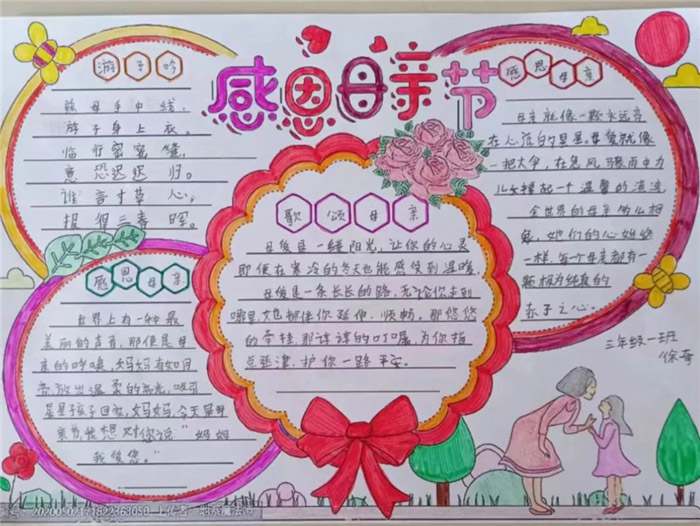 感恩母亲节
游子吟
慈母手中线，
游子身上衣。
临行密密缝，
意恐迟迟归。
谁言寸草心，
报得三春晖。
感恩母亲
母亲就像一颗永远亮
在心海的星星。母爱就像
一把大伞，在急风骤雨中为
儿女撑起一个温馨的港湾
全世界的母亲多么相
像，她们的心始终
一样，每个母亲都有一
颗极为纯真的
赤子之心。
歌颂母亲
母爱是一缕阳光，让你的心灵
即便在寒冷的冬天也能感受到温暖。
母爱是一条长长的路，无论你走到
哪里她都伴你延伸、顺畅，那悠悠
的牵挂，那谆谆的叮咛，为你指
点迷津，护你一路平安。
感恩母亲
世界上有一种最
美丽的声音，那便是母
亲的呼唤，妈妈
温柔的
妈妈今天是母
亲节我想对你说“妈妈
我爱您。”
三年级一班
徐